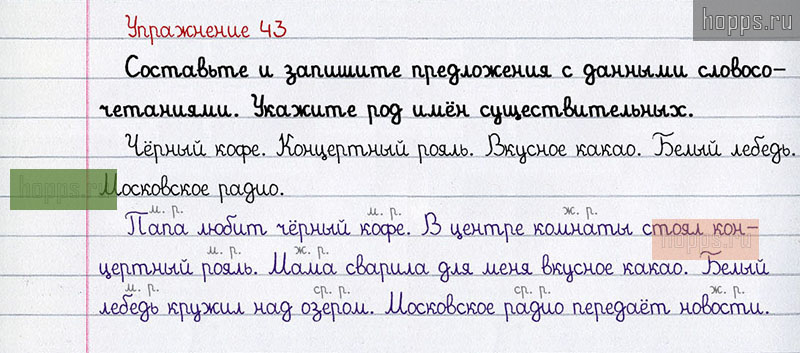 hopps.ru
Упражнение 43
Составьте и запишите предложения с данными словосо-
четаниями. Укажите род имён существительных.
Чёрный кофе. Концертный рояль. Вкусное какао. Белый лебедь.
hopps.ru
Московское радио.
м. р. м. р. ж. р.
Папа любит чёрный кофе. В центре комнаты стоял кон-
hopps.ru
м. р. ж. р.
цертный рояль. Мама сварила для меня вкусное какао. Белый
м. р. ср. р. ср. р. ж. р.
лебедь кружил над озером. Московское радио передаёт новости.